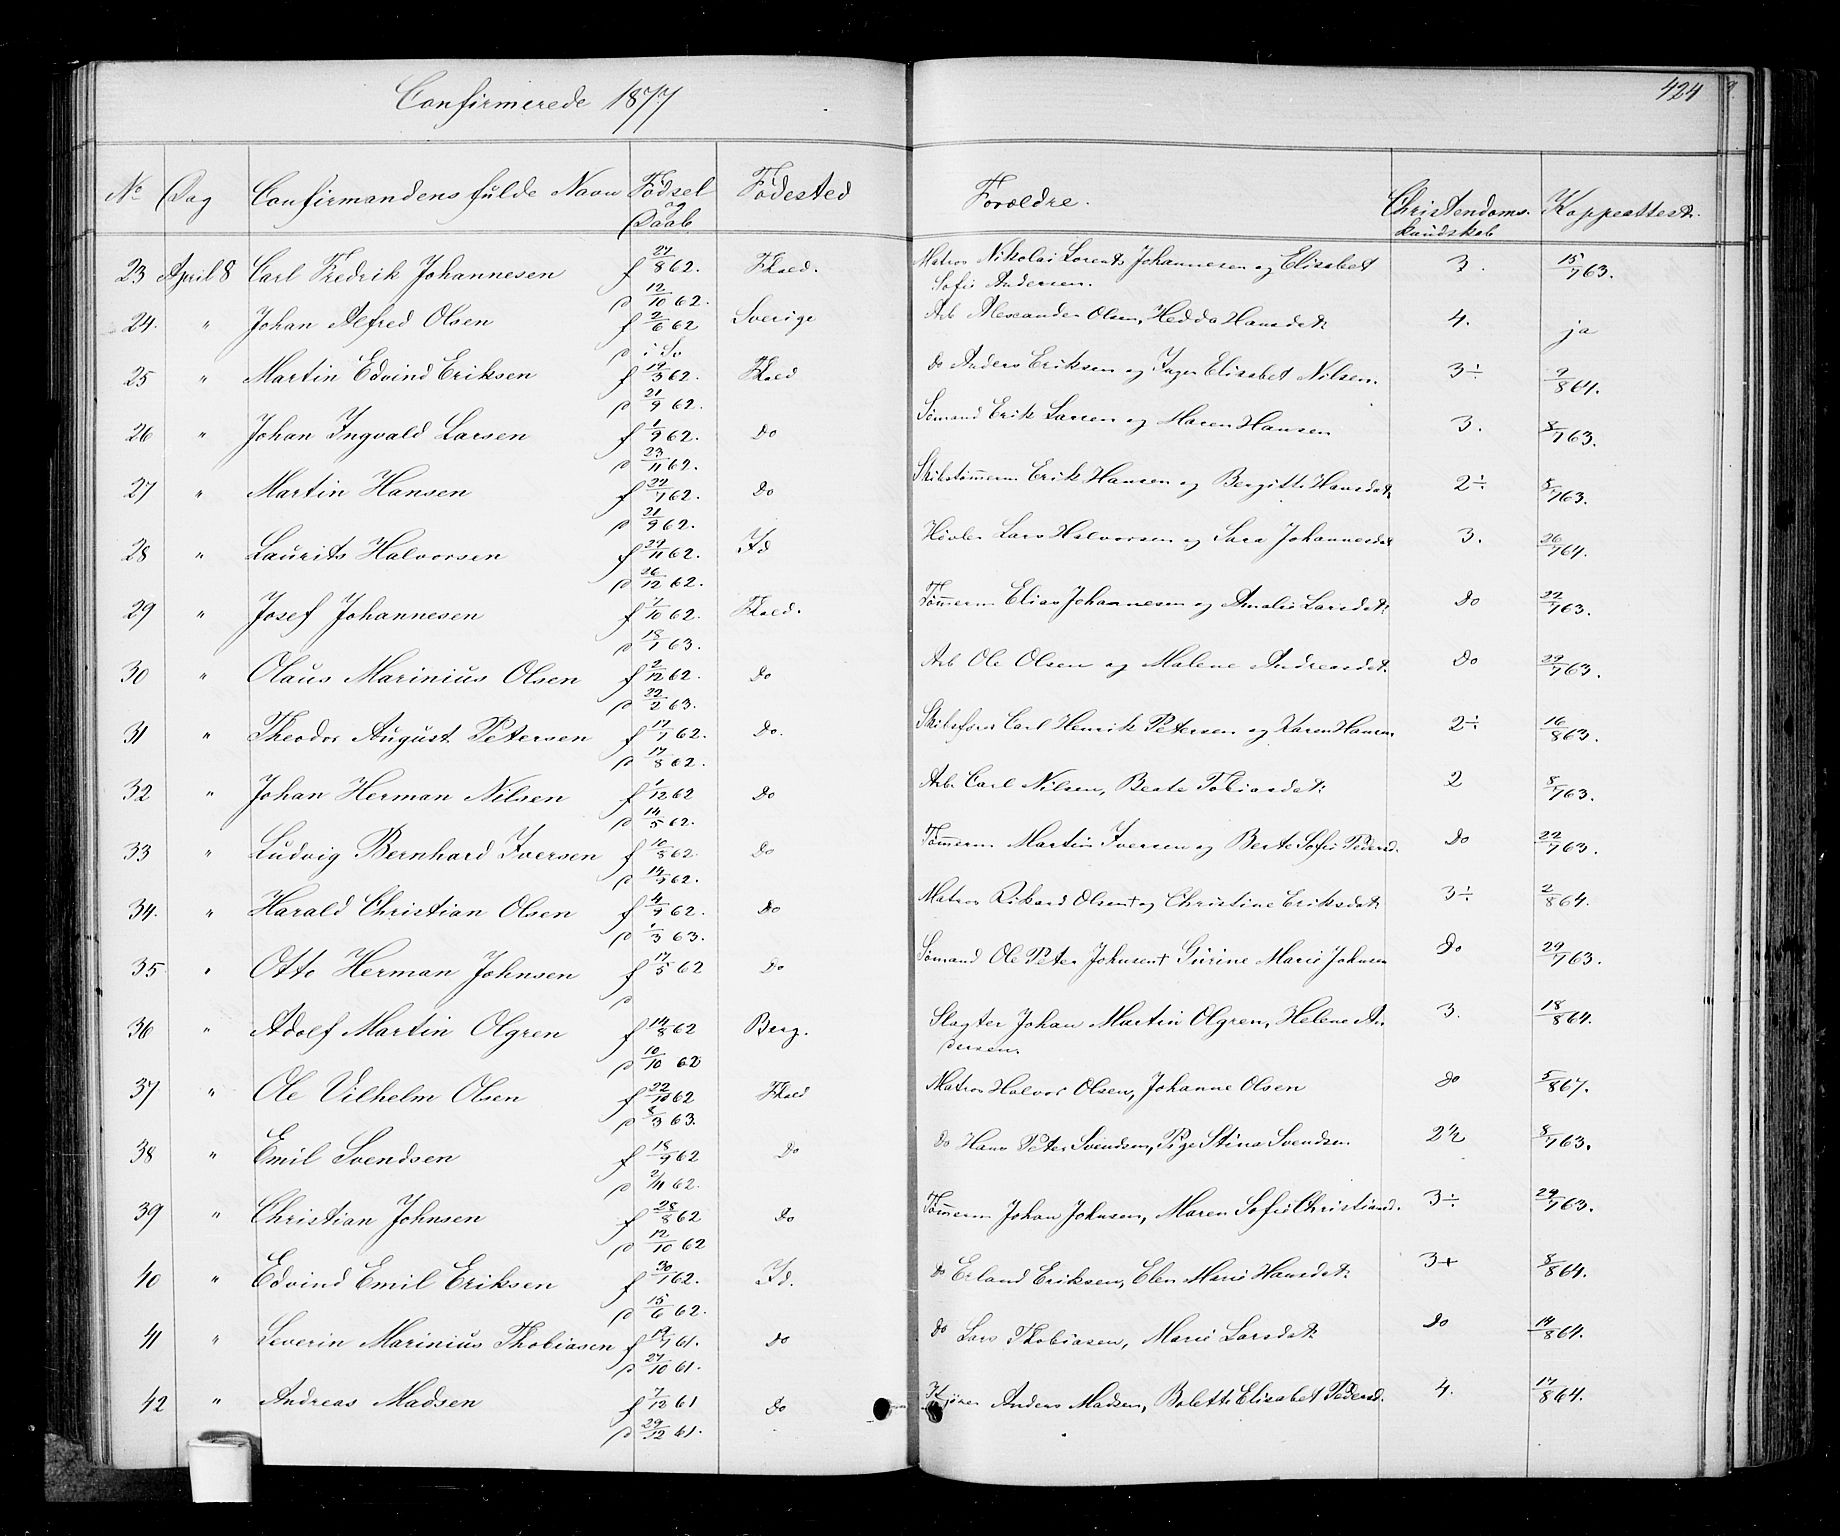 Confirmerede 1877
424
No Dag Confirmandens fulde Navn Fødsel og Daab Fødested Forældre. Christendoms. kundskab Koppeattest.
23 April 8 Carl Fredrik Johannesen f 27/8 62. d 12/10 62. Fhald. Matros Nikolai Lorents Johannesen og Elisabet Sofie Andersen. 3. 15/7 63.
24. " Johan Alfred Olsen f 2/6 62 d i Sv Sverige Arb Alexander Olsen, Hedda Hansdat: 4. ja
25 " Martin Edvind Eriksen f 19/3 62. d 21/9 62. Fhald do Anders Eriksen og Inger Elisabet Nilsen. 3÷ 2/8 64.
26 " Johan Ingvald Larsen f 1/9 62. d 23/11 62. Do Sømand Erik Larsen og Maren Hansen 3. 8/7 63.
27 " Martin Hansen f 22/7 62. d 21/9 62. Do Skibstømerm Erik Hansen og Bergitte Hansdat: 2÷ 8/7 63.
28 " Laurits Halvorsen f 29/11 62. d 26/12 62. Id Høvler Lars Halvorsen og Sara Johannesdat 3. 26/7 64.
29 " Josef Johannesen f 7/10 62. d 18/1 63. Fhald. Tømerm Elias Johannesen og Amalie Larsdat: Do 22/7 63.
30 " Olaus Marinius Olsen f 2/12 62. d 22/2 63. Do Arb Ole Olsen og Malene Andreasdat: Do 29/7 63.
31 " Theodor August Petersen f 17/1 62. d 17/8 62. Do. Skibsfører Carl Henrik Petersen og Karen Hansen 2÷ 16/8 63.
32 " Johan Herman Nilsen f 1/12 62 d 14/5 62. Do Arb. Carl Nilsen, Beate Tobiasdat: 2 8/7 63.
33 " Ludvig Bernhard Iversen f 10/3 62. d 14/5 62. Do Tømerm Martin Iversen og Berte Sofie Pedersd. Do 22/7 63.
34. " Harald Christian Olsen f 4/7 62. d 1/3 63. Do Matros Rikard Olsen† og Christine Eriksdat: 3÷ 2/8 64.
35 " Otto Herman Johnsen f 17/5 62 d Do Sømand Ole Peter Johnsen† Gurine Marie Johnsen Do 29/7 63.
36 " Adolf Martin Olgren f 14/8 62 d 10/10 62 Berg. Slagter Johan Martin Olgren, Helene Andersen. 3. 18/8 64.
37 " Ole Vilhelm Olsen f 22/10 62 d 8/3 63. Fhald Matros Halvor Olsen, Johanne Olsen do 5/8 67.
38 " Emil Svendsen f 18/9 62 d 2/11 62. Do do Hans Peter Svendsen, Pige Stina Svendsen 2½ 8/7 63.
39 " Christian Johnsen f 28/8 62 d 12/10 62 Do Tømerm Johan Johnsen, Maren Sofie Christiansd. 3÷ 29/7 63.
40 " Edvind Emil Eriksen f 30/1 62. d 15/6 62. Id. do Erland Eriksen, Elen Marie Hansdat: 3+ 8/8 64.
41 " Severin Marinius Thobiasen f 19/7 61. d 27/10 61. Do do Lars Thobiasen, Marie Larsdat: Do 14/8 64.
42 " Andreas Madsen f 7/12 61 d 29/12 61. Do Anders Madsen, Bolette Elisabet Pedersd. 4. 17/8 64.